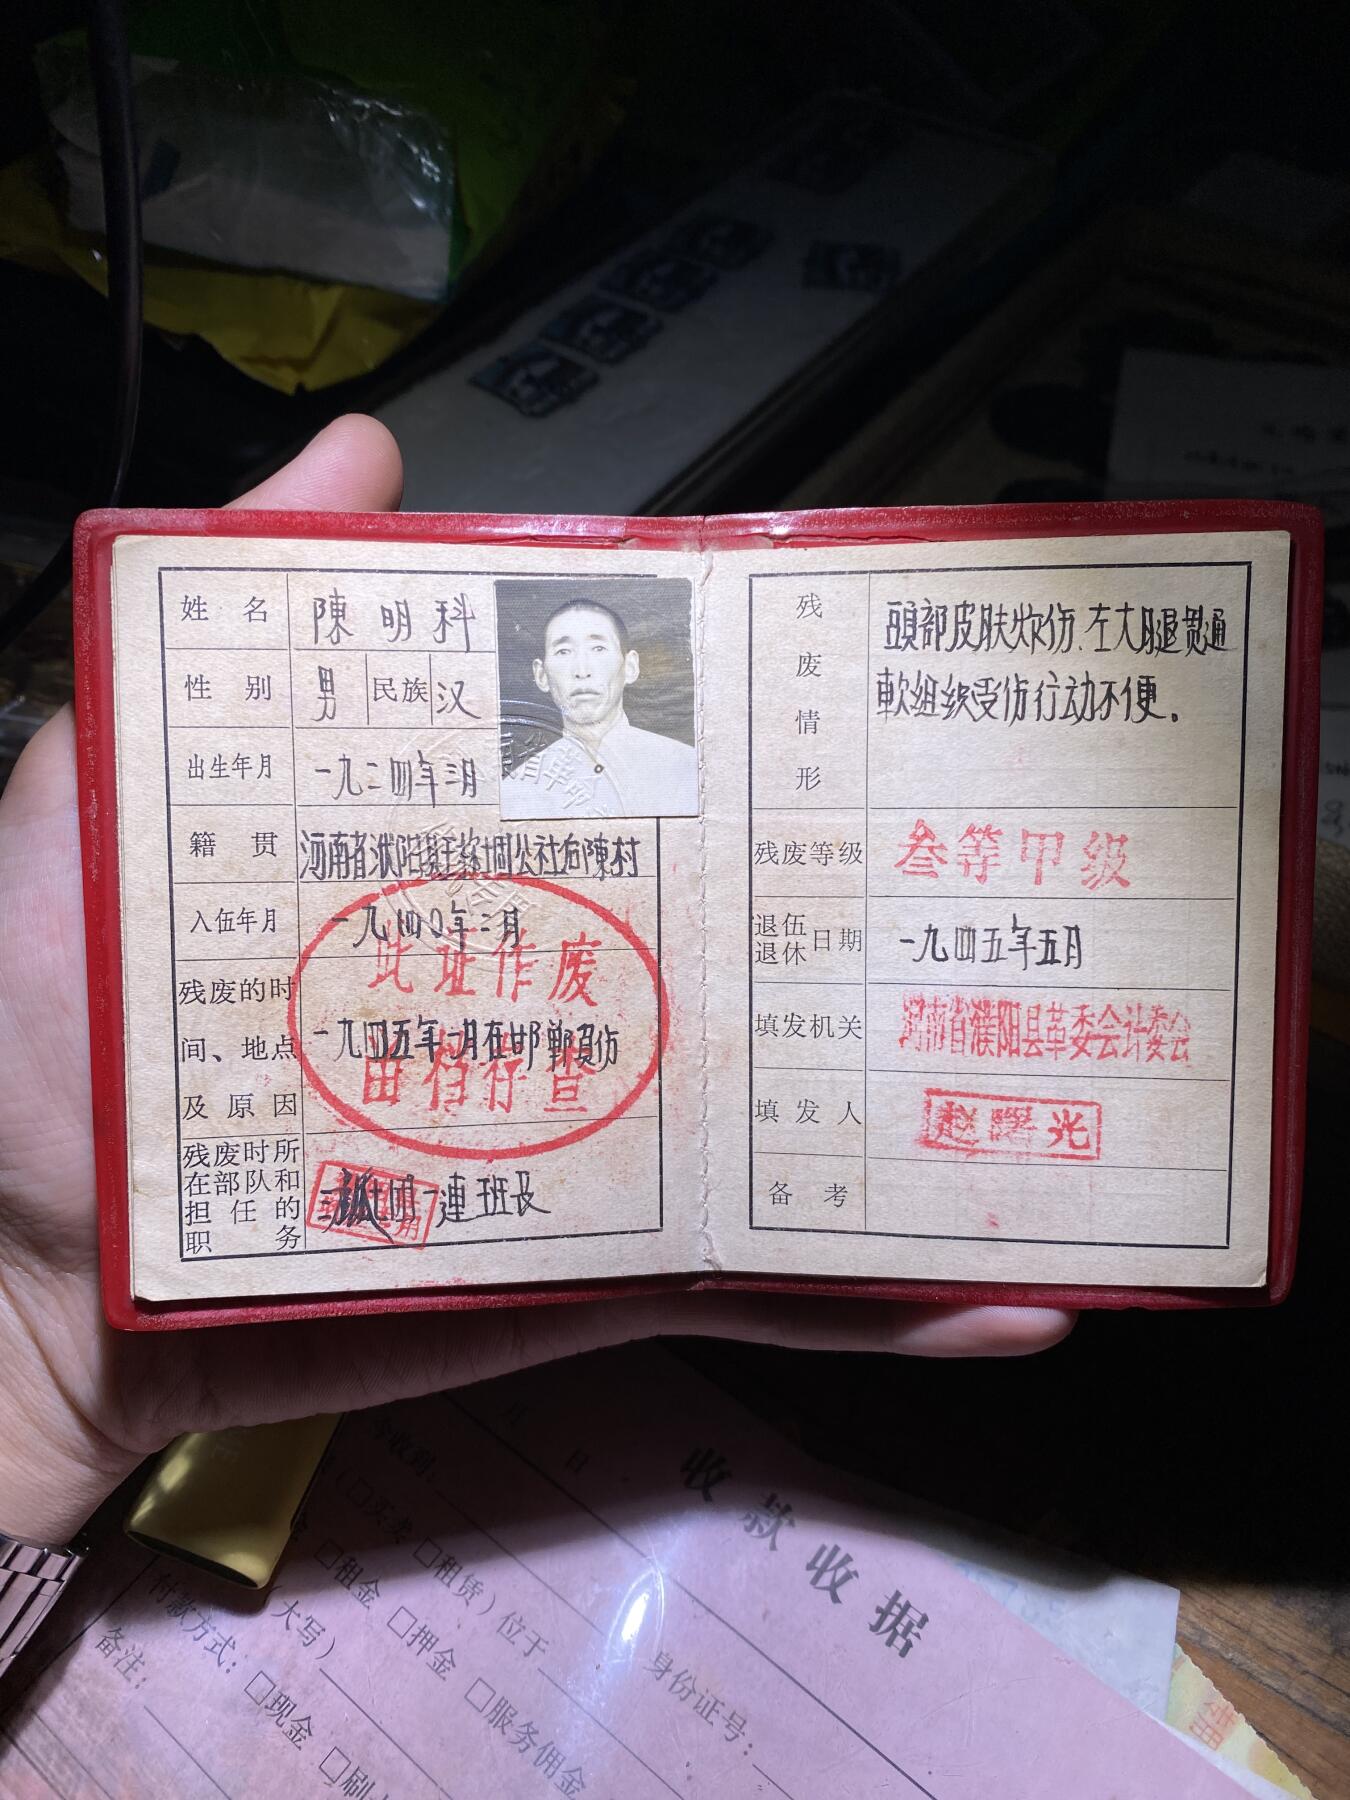 姓名 陳明科
性别 男 民族 汉
出生年月 一九二四年三月
籍贯 河南省濮阳县王称堌公社后陳村
入伍年月 一九四〇年二月
此证作废
由档存查
残废的时间、地点及原因 一九四五年一月在邯鄲負伤
残废时所在部队和担任的职务 团一連班长
残废情形 頭部皮肤炊伤、左大腿贯通
軟组织受伤行动不便。
残废等级 叁等甲级
退伍退休日期 一九四五年五月
填发机关 河南省濮阳县革委会计委会
填发人 赵曙光
备考
收款收据
月 日
今收到:
(□买卖 □租赁)位于
身份证号:
□租金 □押金 □服务佣金
(大写)
付款方式: □现金 □刷
备注: